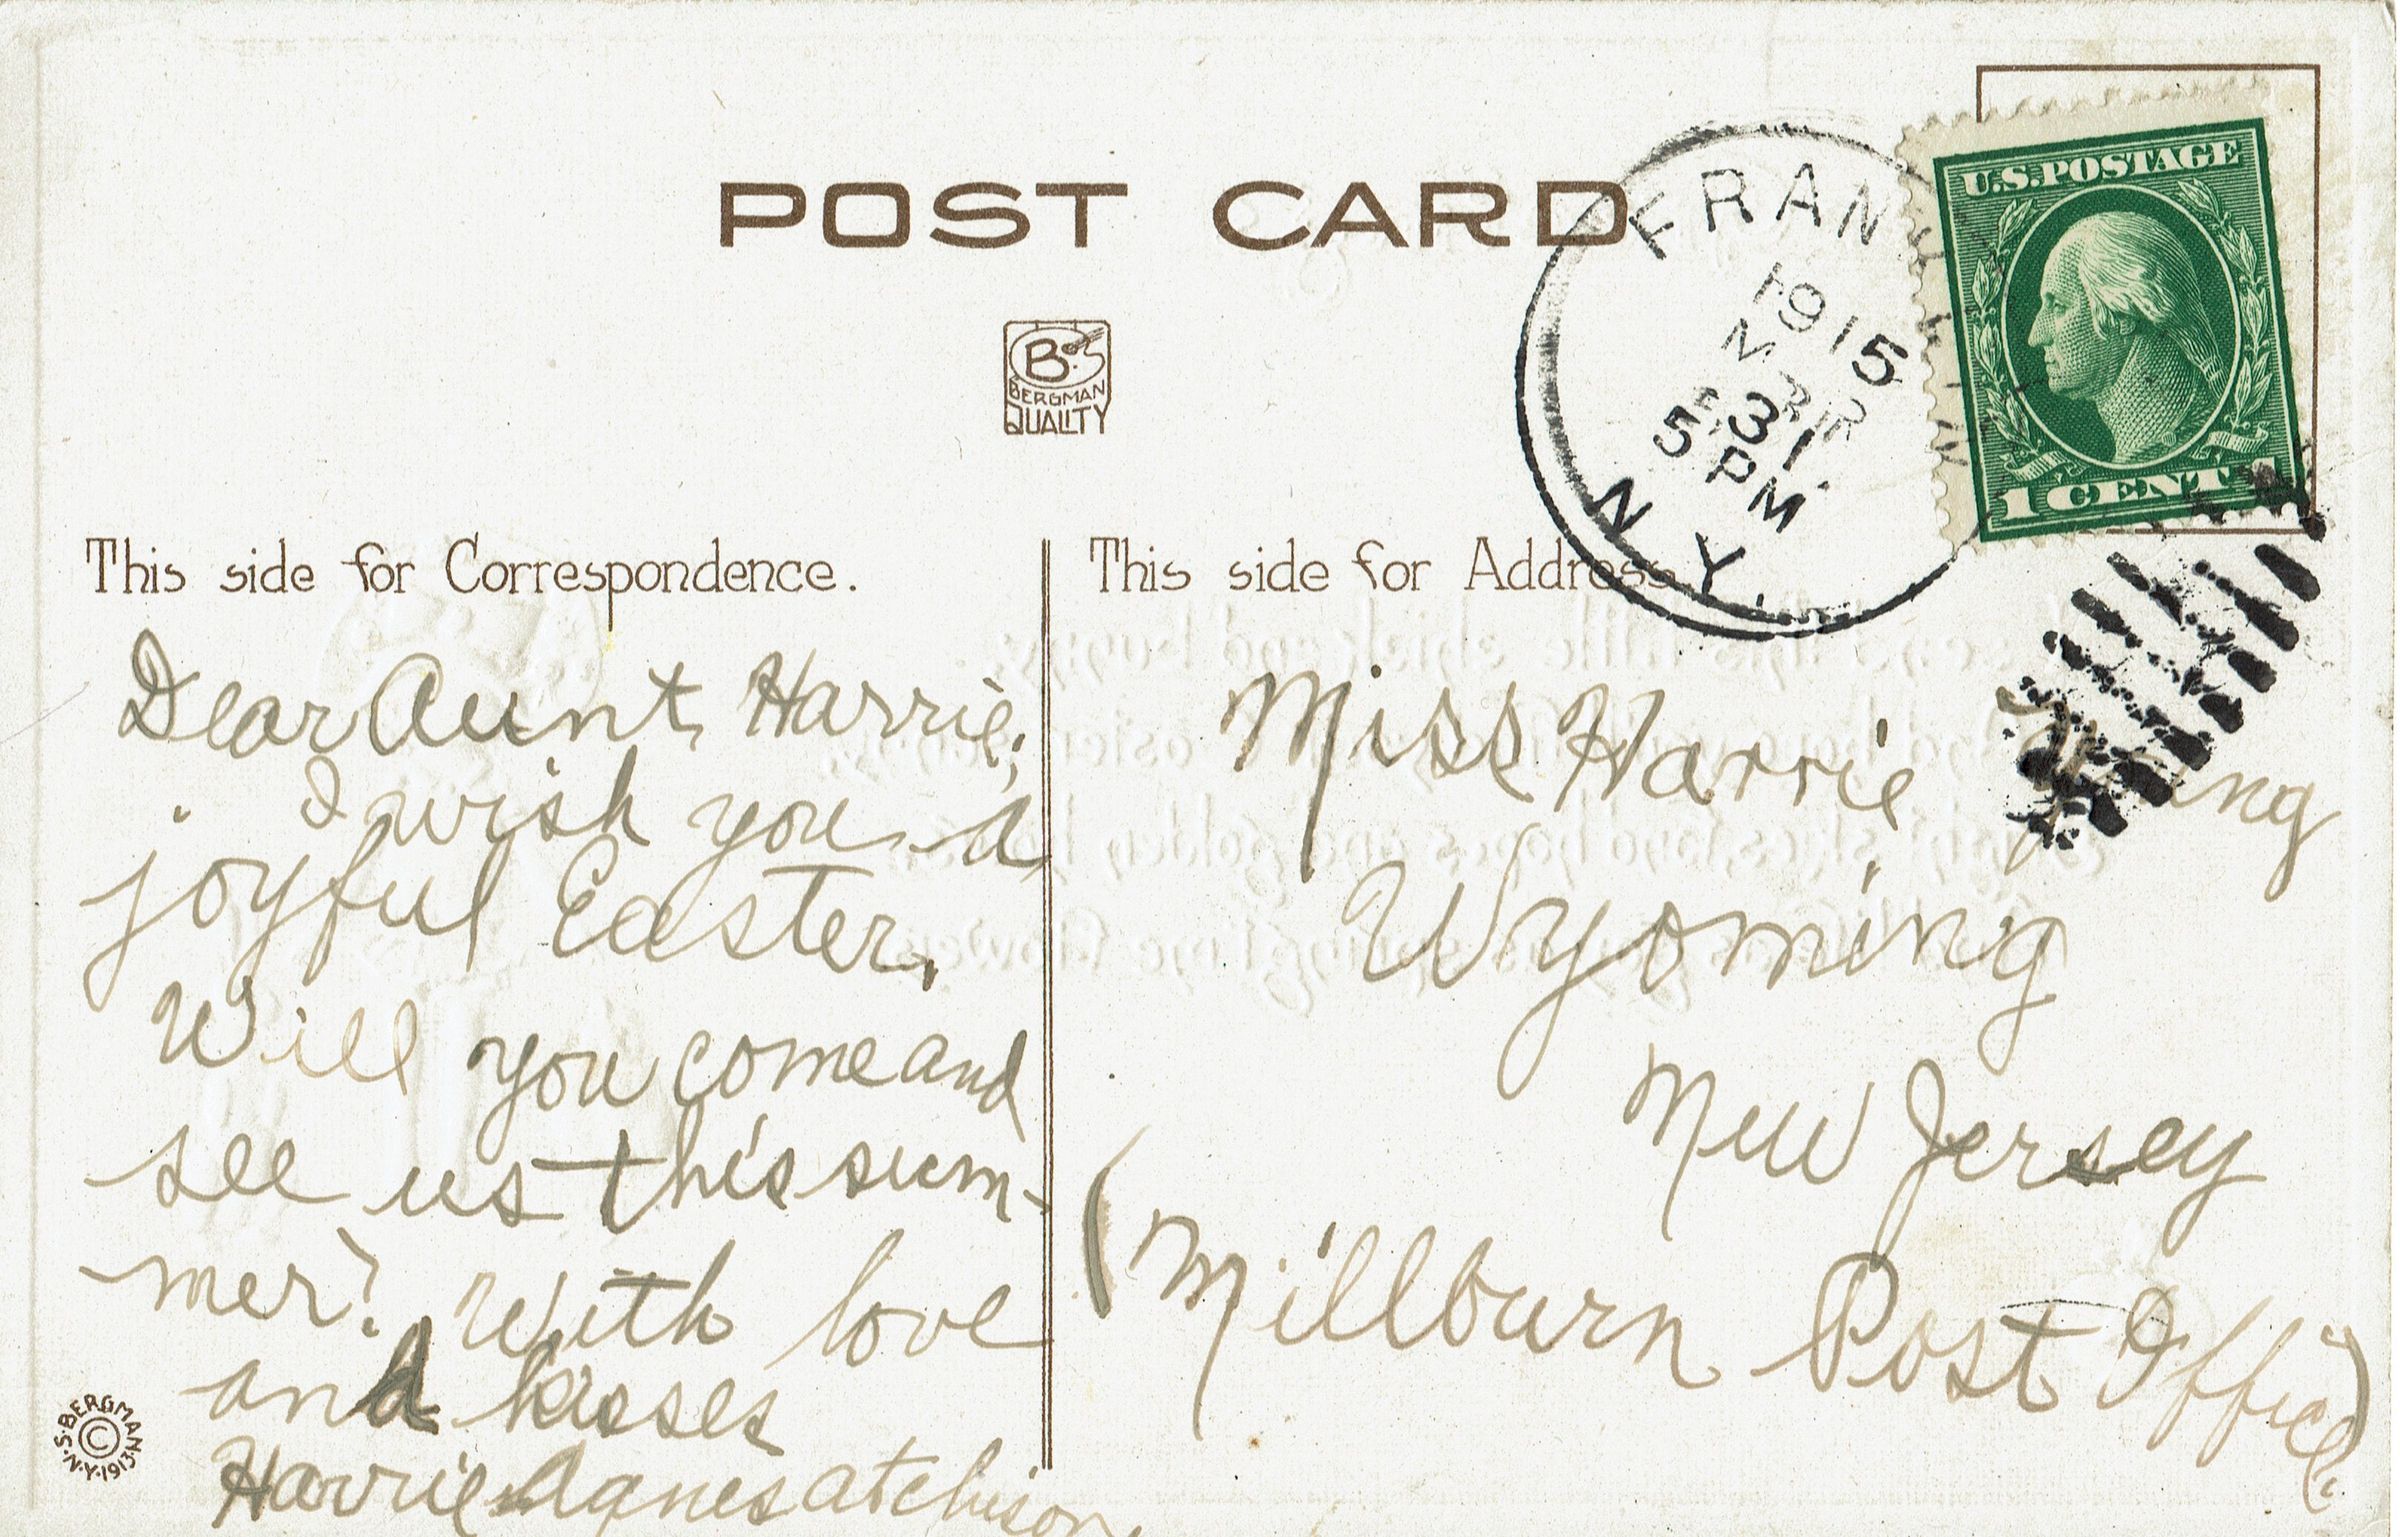 POST CARD
FRANKLIN
1915
MAR
31
5 PM
N.Y.
U.S.POSTAGE
1 CENT 1
B.S
BERGMAN
QUALITY
This side for Correspondence.
Dear Aunt Harrie;
I wish you a
joyful Easter.
Will you come and
see us this sum-
mer? With love
and kisses
Harrie Agnes Atchison.
S. BERGMAN
©
N.Y. 1913
This side for Address
Miss Harrie
Wyoming
New Jersey
(Millburn Post Office.)